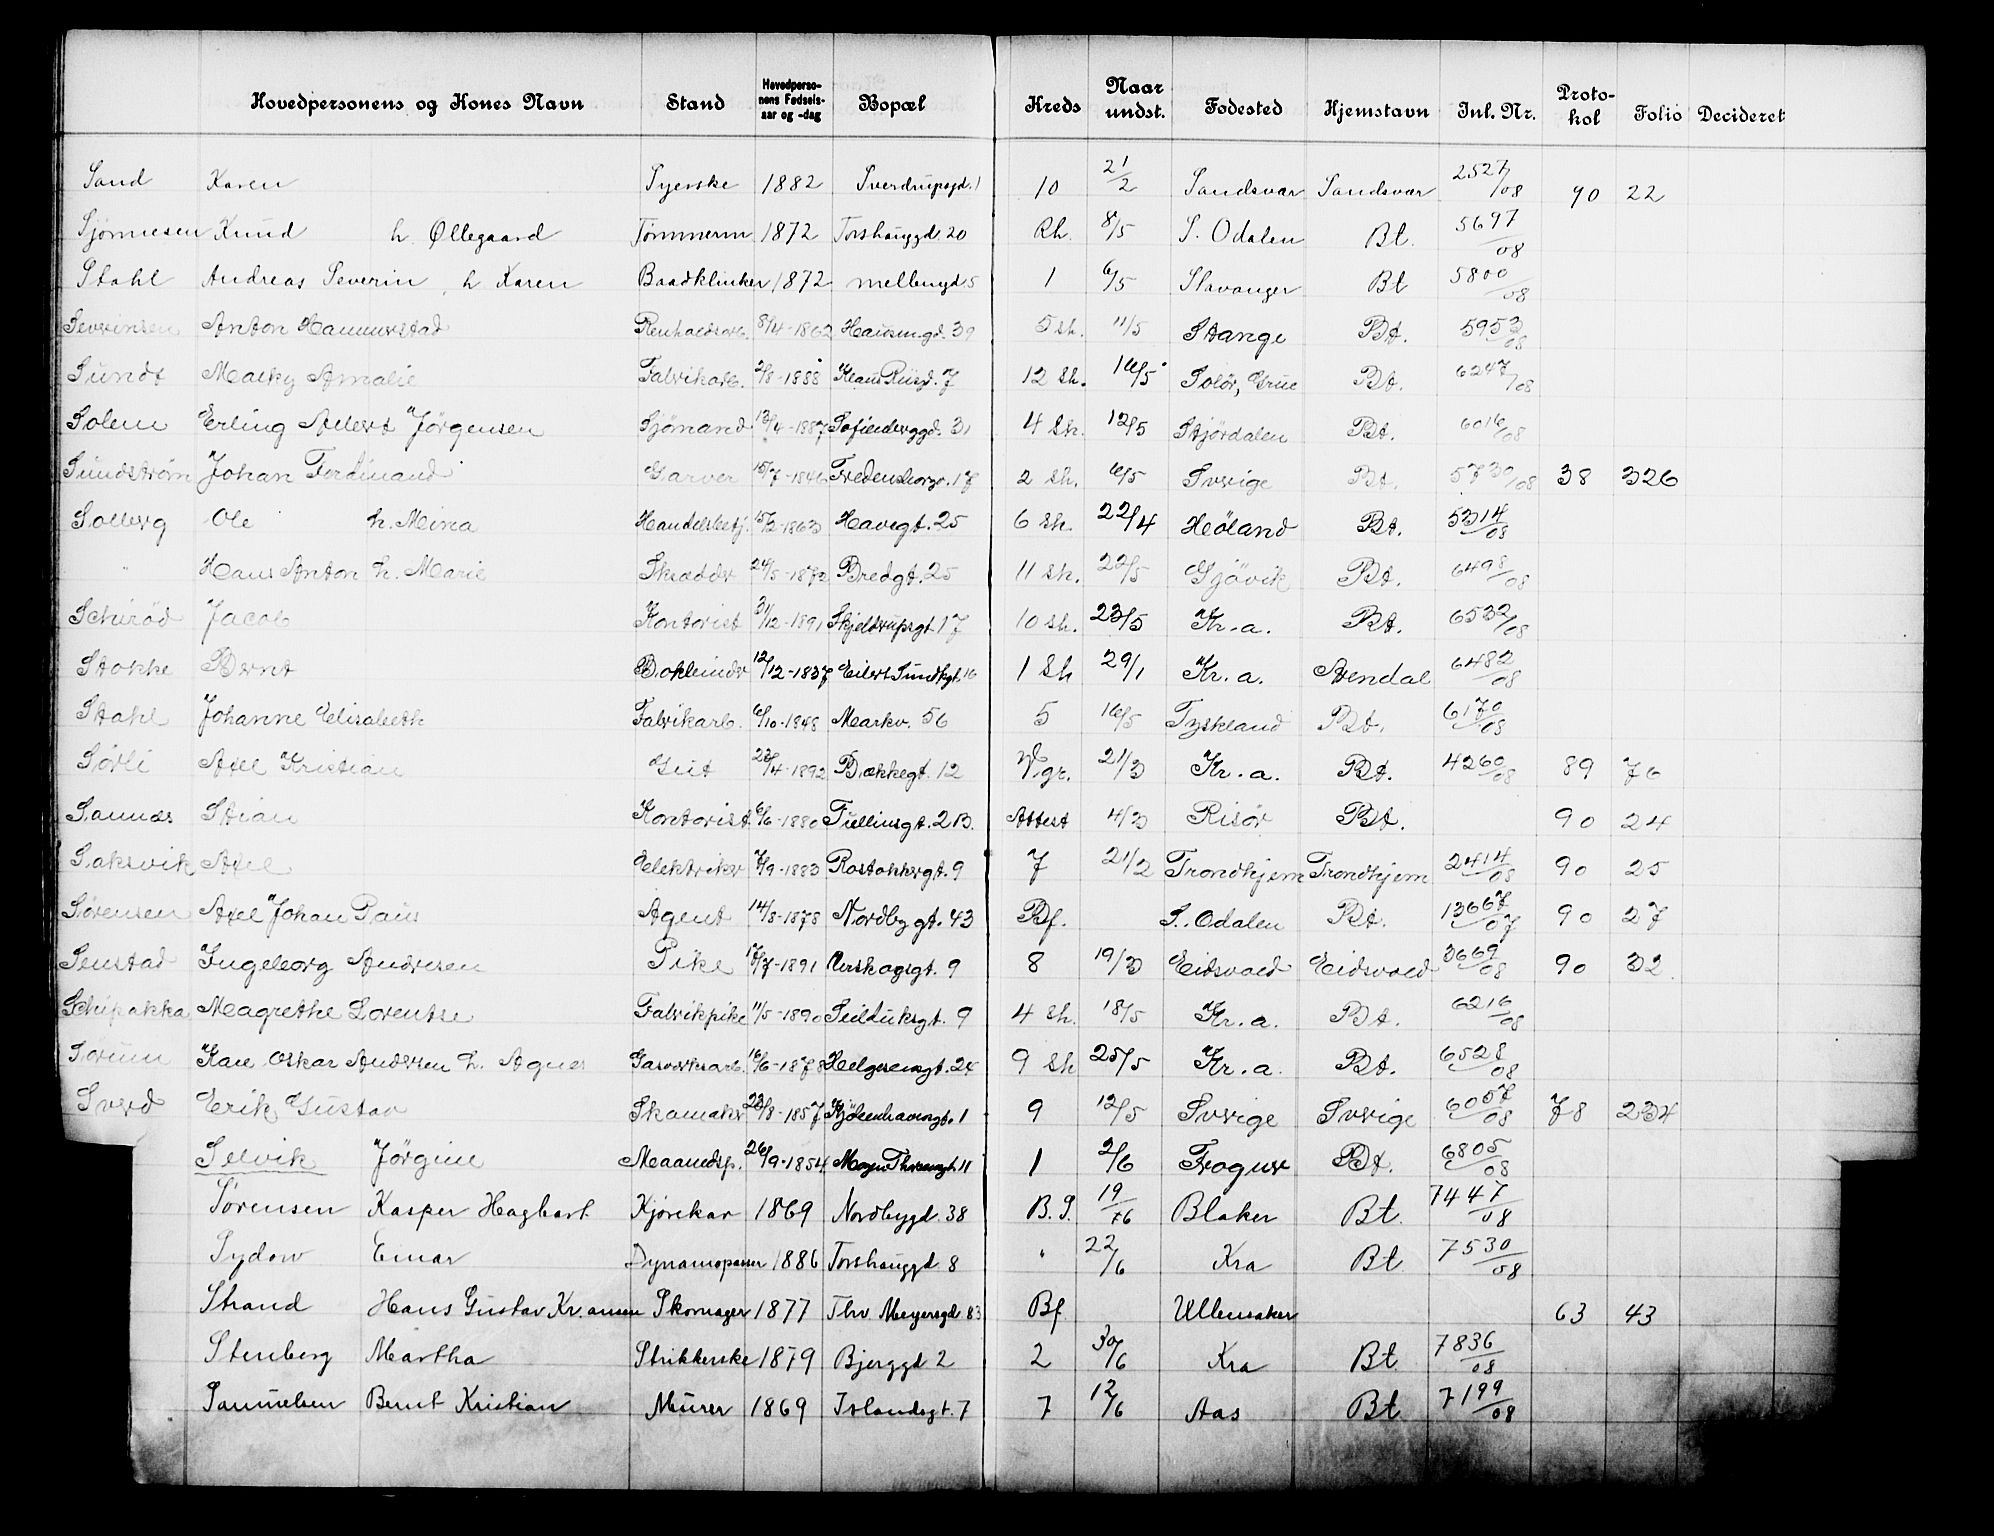 Hovedpersonens og Kones Navn Stand Hovedpersonens Fødselsaar og -dag Bopæl Kreds Naar undst. Fødested Hjemstavn Inl. Nr. Protokol Folio Decideret
Sand Karen Syerske 1882 Sverdrupsgd. 1 10 21/2 Sandsvær Sandsvær 2527/08 90 22
Sjønnesen Knud h. Øllegaard Tømmerm 1872 Torshauggd. 20 Rh. 8/5 S. Odalen Bt. 5697/08
Stahl Andreas Severin, h Karen Baadklinker 1872 Mellemgd 5 1 6/5 Stavanger Bt 5800/08
Severinsen Anton Hammerstad Renholdsarb. 8/4-1862 Hausmgd. 39 5 sk. 11/5 Stange Bt. 5953/08
Sundt Amalie Fabrikarb. 2/8-1888 Klaus Riisgd. 7 12 Sk. 16/5 Solör, Grue Bt. 6247/08
Solem Erling Albert Jörgensen Sjömand 13/4-1887 Sofienberggd. 31 4 Sk. 12/5 Stjördalen Bt. 6016/08
Sundström Johan Ferdinand Garver 15/7-1846 Fredensborgv. 17 2 sk. 6/5 Sverige Bt. 5730/08 38 326
Solberg Ole h. Mina Handelsbetj. 15/2-1863 Havegt. 25 6 Sk. 22/4 Höland Bt. 5314/08
" Hans Anton h. Marie Skrædder 24/5-1872 Bredgt. 25 11 Sk. 22/5 Gjövik Bt. 6498/08
Schiröd Jacob Kontorist 31/12-1891 Skjeldrupsgt 17 10 Sk. 23/5 Kr.a. Bt. 6532/08
Stokke Bernt Bokbinder 12/12-1837 Eilert Sundtsgt. 16 1 Sk 29/1 Kr.a. Arendal 6482/08
Stahl Johanne Elisabeth Fabrikarb. 6/10-1848 Markv. 56 5 16/5 Tyskland Bt. 6170/08
Sørli Axel Kristian Gut 23/4-1892 Bækkegt. 12 V.gr. 21/3 Kr.a. Bt. 4260/08 89 76
Sannæs Stian Kontorist 6/6-1880 Tullinsgt. 2B. Attest 4/3 Risör Bt. 90 24
Saksvik Axel Elektriker 7/9-1883 Rostokkergt. 9 7 21/2 Trondhjem Trondhjem 2414/08 90 25
Sørensen Axel Johan Paus Agent 14/8-1878 Nordbygt. 43 Bf. S. Odalen Bt. 13667/07 90 27
Senstad Ingeborg Andresen Pike 17/7-1891 Urskogsgt. 9 8 19/3 Eidsvold Eidsvold 3669/08 90 32
Schipakka Magrethe Lorentse Fabrikpike 11/5-1890 Seilduksgt. 9 4 Sk. 18/5 Kr.a. Bt. 6216/08
Sørum Karl Oskar Andersen h. Agnes Gasverksarb. 16/6-1878 Helgesensgt. 24 9 Sk 25/5 Kr.a. Bt. 6528/08
Sverd Erik Gustav Skomaker 23/8-1857 Kjöbenhavnsgt. 1 9 12/5 Sverige Sverige 6057/08 78 234
Selvik Jörgine Maanedsp. 26/9-1854 Magn Thranesgt. 11 1 2/6 Frogner Bt. 6805/08
Sørensen Kasper Hagbart Kjørekar 1869 Nordbygd. 38 B.S. 19/6 Blaker Bt. 7447/08
Sydow Einar Dynamopasser 1886 Torshauggd. 8 " 22/6 Kra Bt 7530/08
Strand Hans Gustav Kr.ansen Skomager 1877 Thv. Meyersgd 83 Bf. Ullensaker 63 43
Stenberg Martha Strikkerske 1879 Bjerggd 2 2 30/6 Kra Bt. 7836/08
Samuelsen Bernt Kristian Murer 1869 Islandsgt. 7 7 12/6 Aas Bt. 7199/08